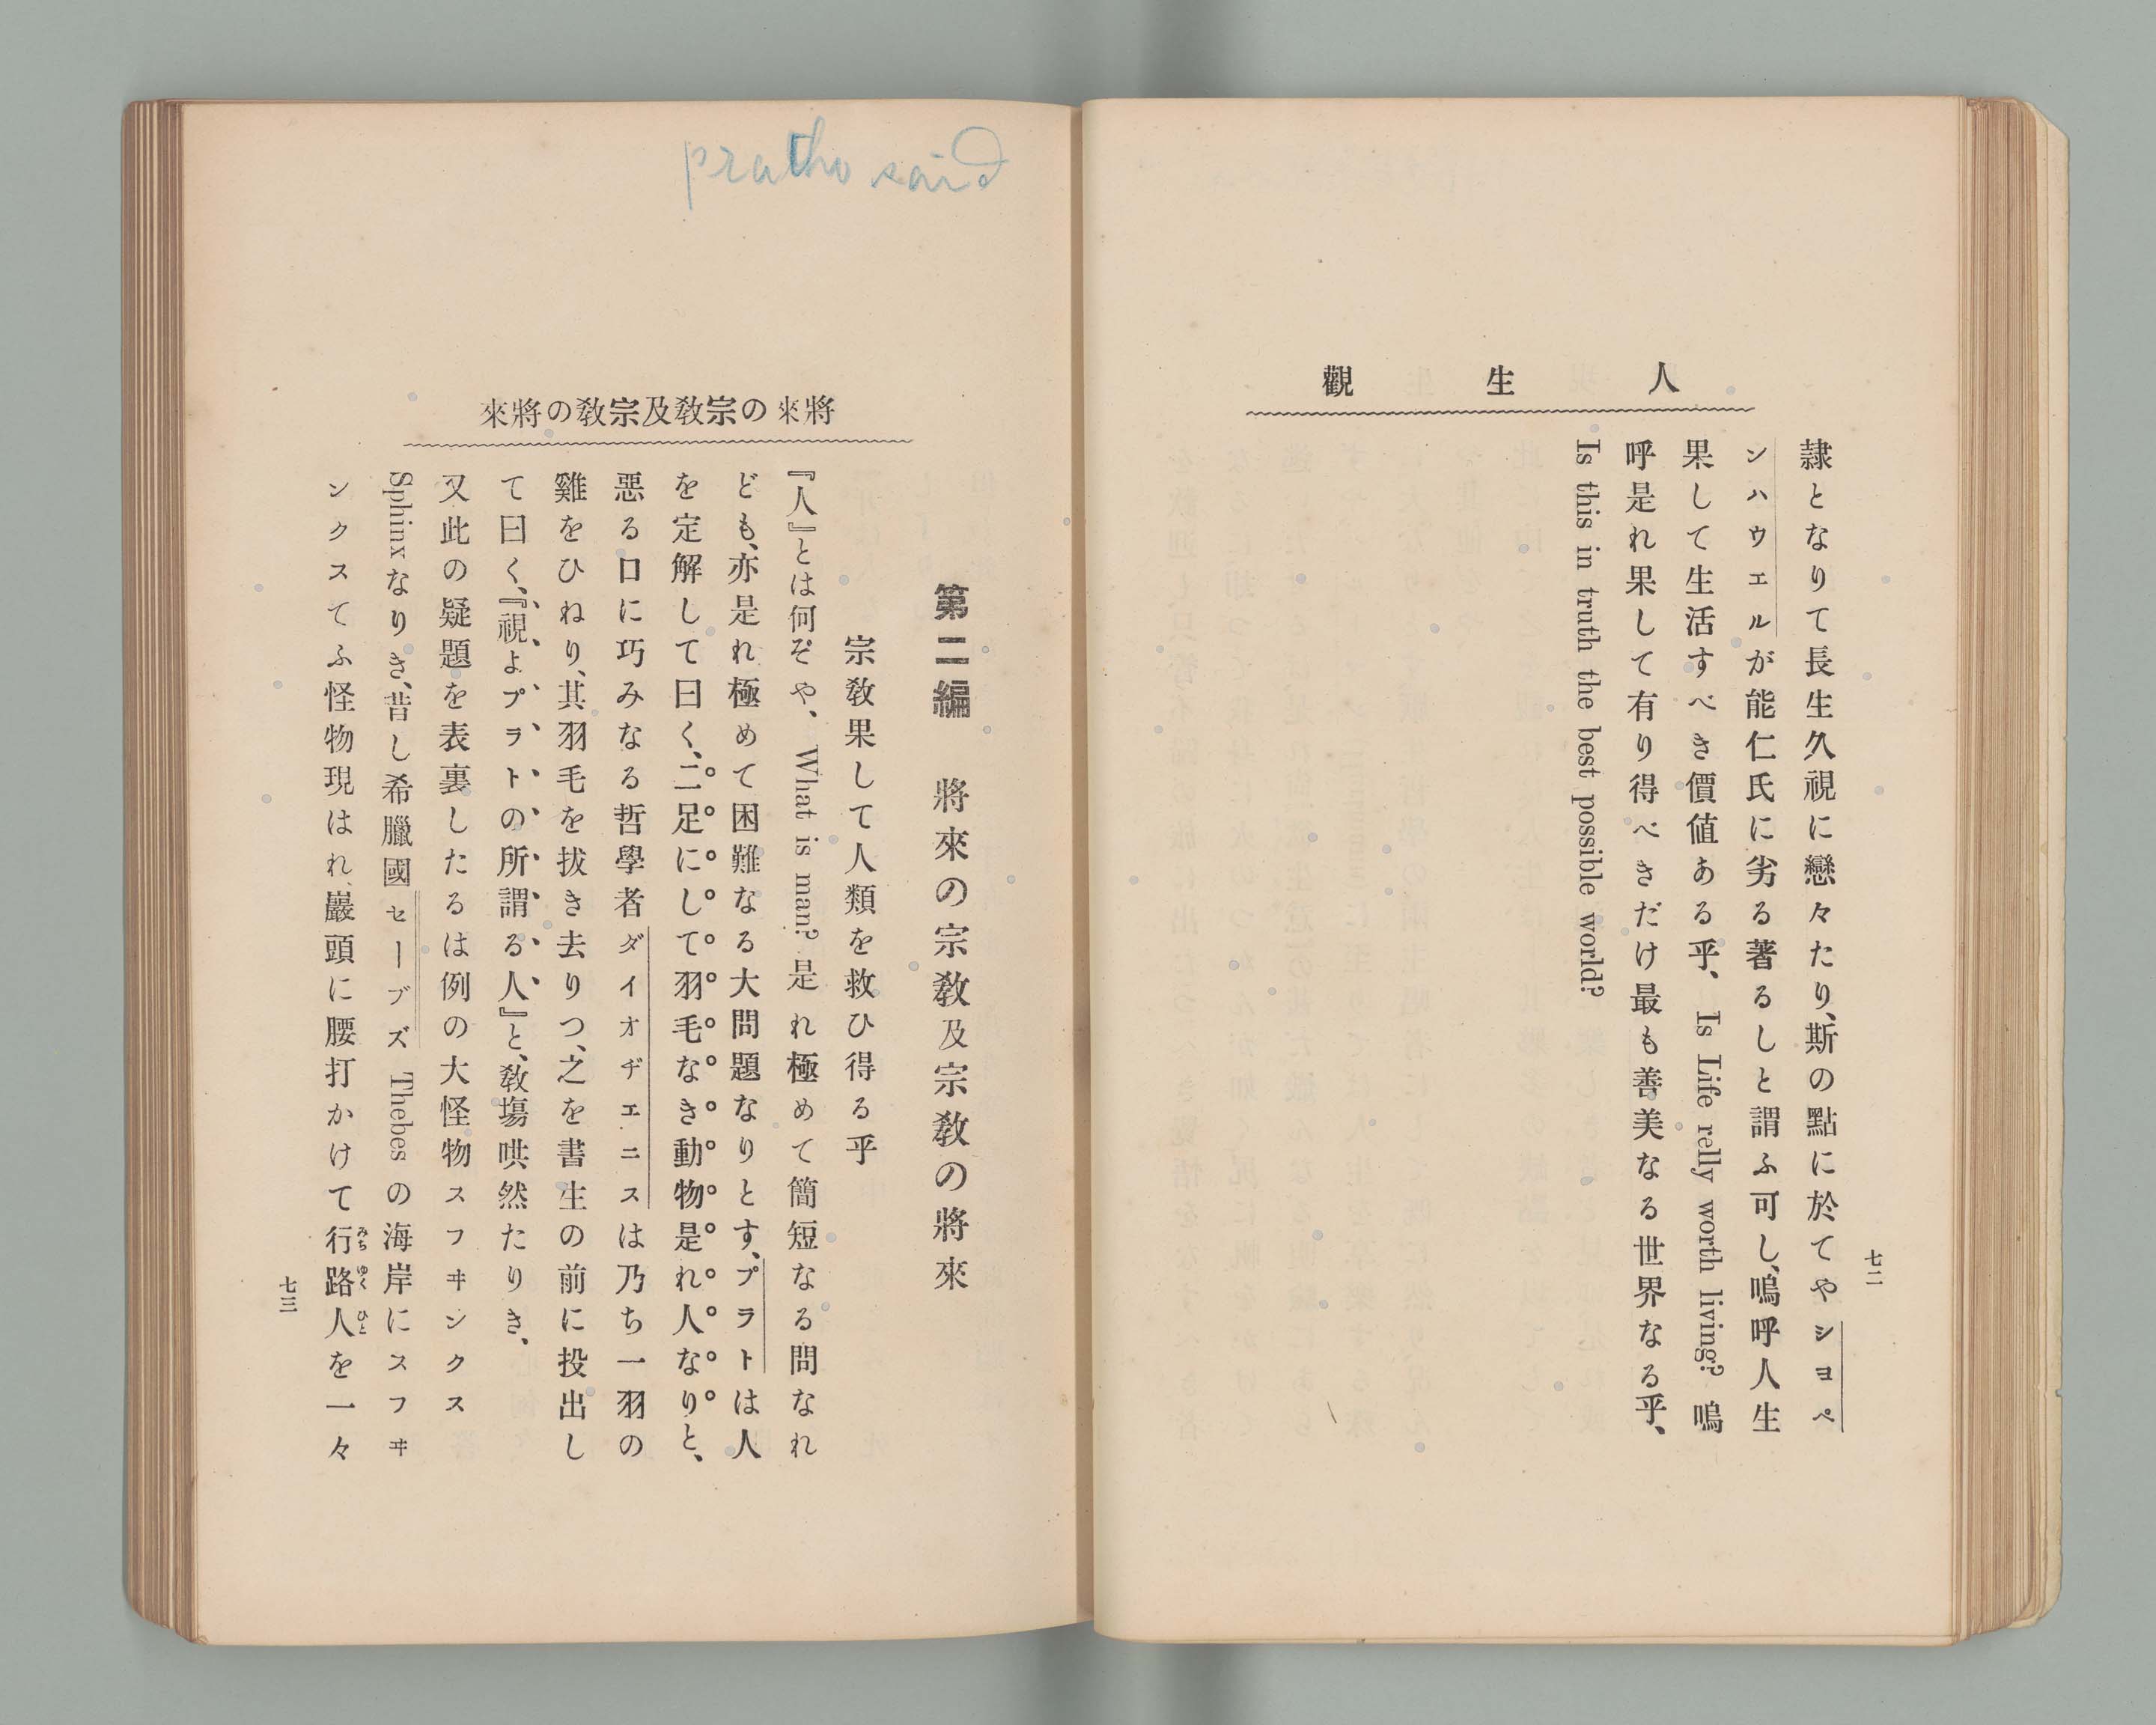 人生觀
隷となりて長生久視に戀々たり、斯の點に於てやシヨペ
ンハウエルが能仁氏に劣る著るしと謂ふ可し、嗚呼人生
果して生活すべき價値ある乎、Is Life relly worth living? 嗚
呼是れ果して有り得べきだけ最も善美なる世界なる乎、
Is this in truth the best possible world?
七二
pratho said
將來の宗敎及宗敎の將來
第二編 將來の宗敎及宗敎の將來
宗敎果して人類を救ひ得る乎
『人』とは何ぞや、What is man? 是れ極めて簡短なる問なれ
ども、亦是れ極めて困難なる大問題なりとす、プラトは人
を定解して曰く、二足にして羽毛なき動物是れ人なりと、
惡る口に巧みなる哲學者ダイオヂエニスは乃ち一羽の
雞をひねり、其羽毛を拔き去りつ、之を書生の前に投出し
て曰く、『視よプラトの所謂る人』と、敎塲哄然たりき、
又此の疑題を表裏したるは例の大怪物スフヰンクス
Sphinxなりき、昔し希臘國セーブズ Thebes の海岸にスフヰ
ンクスてふ怪物現はれ、巖頭に腰打かけて行路人を一々
みちゆくひと
七三